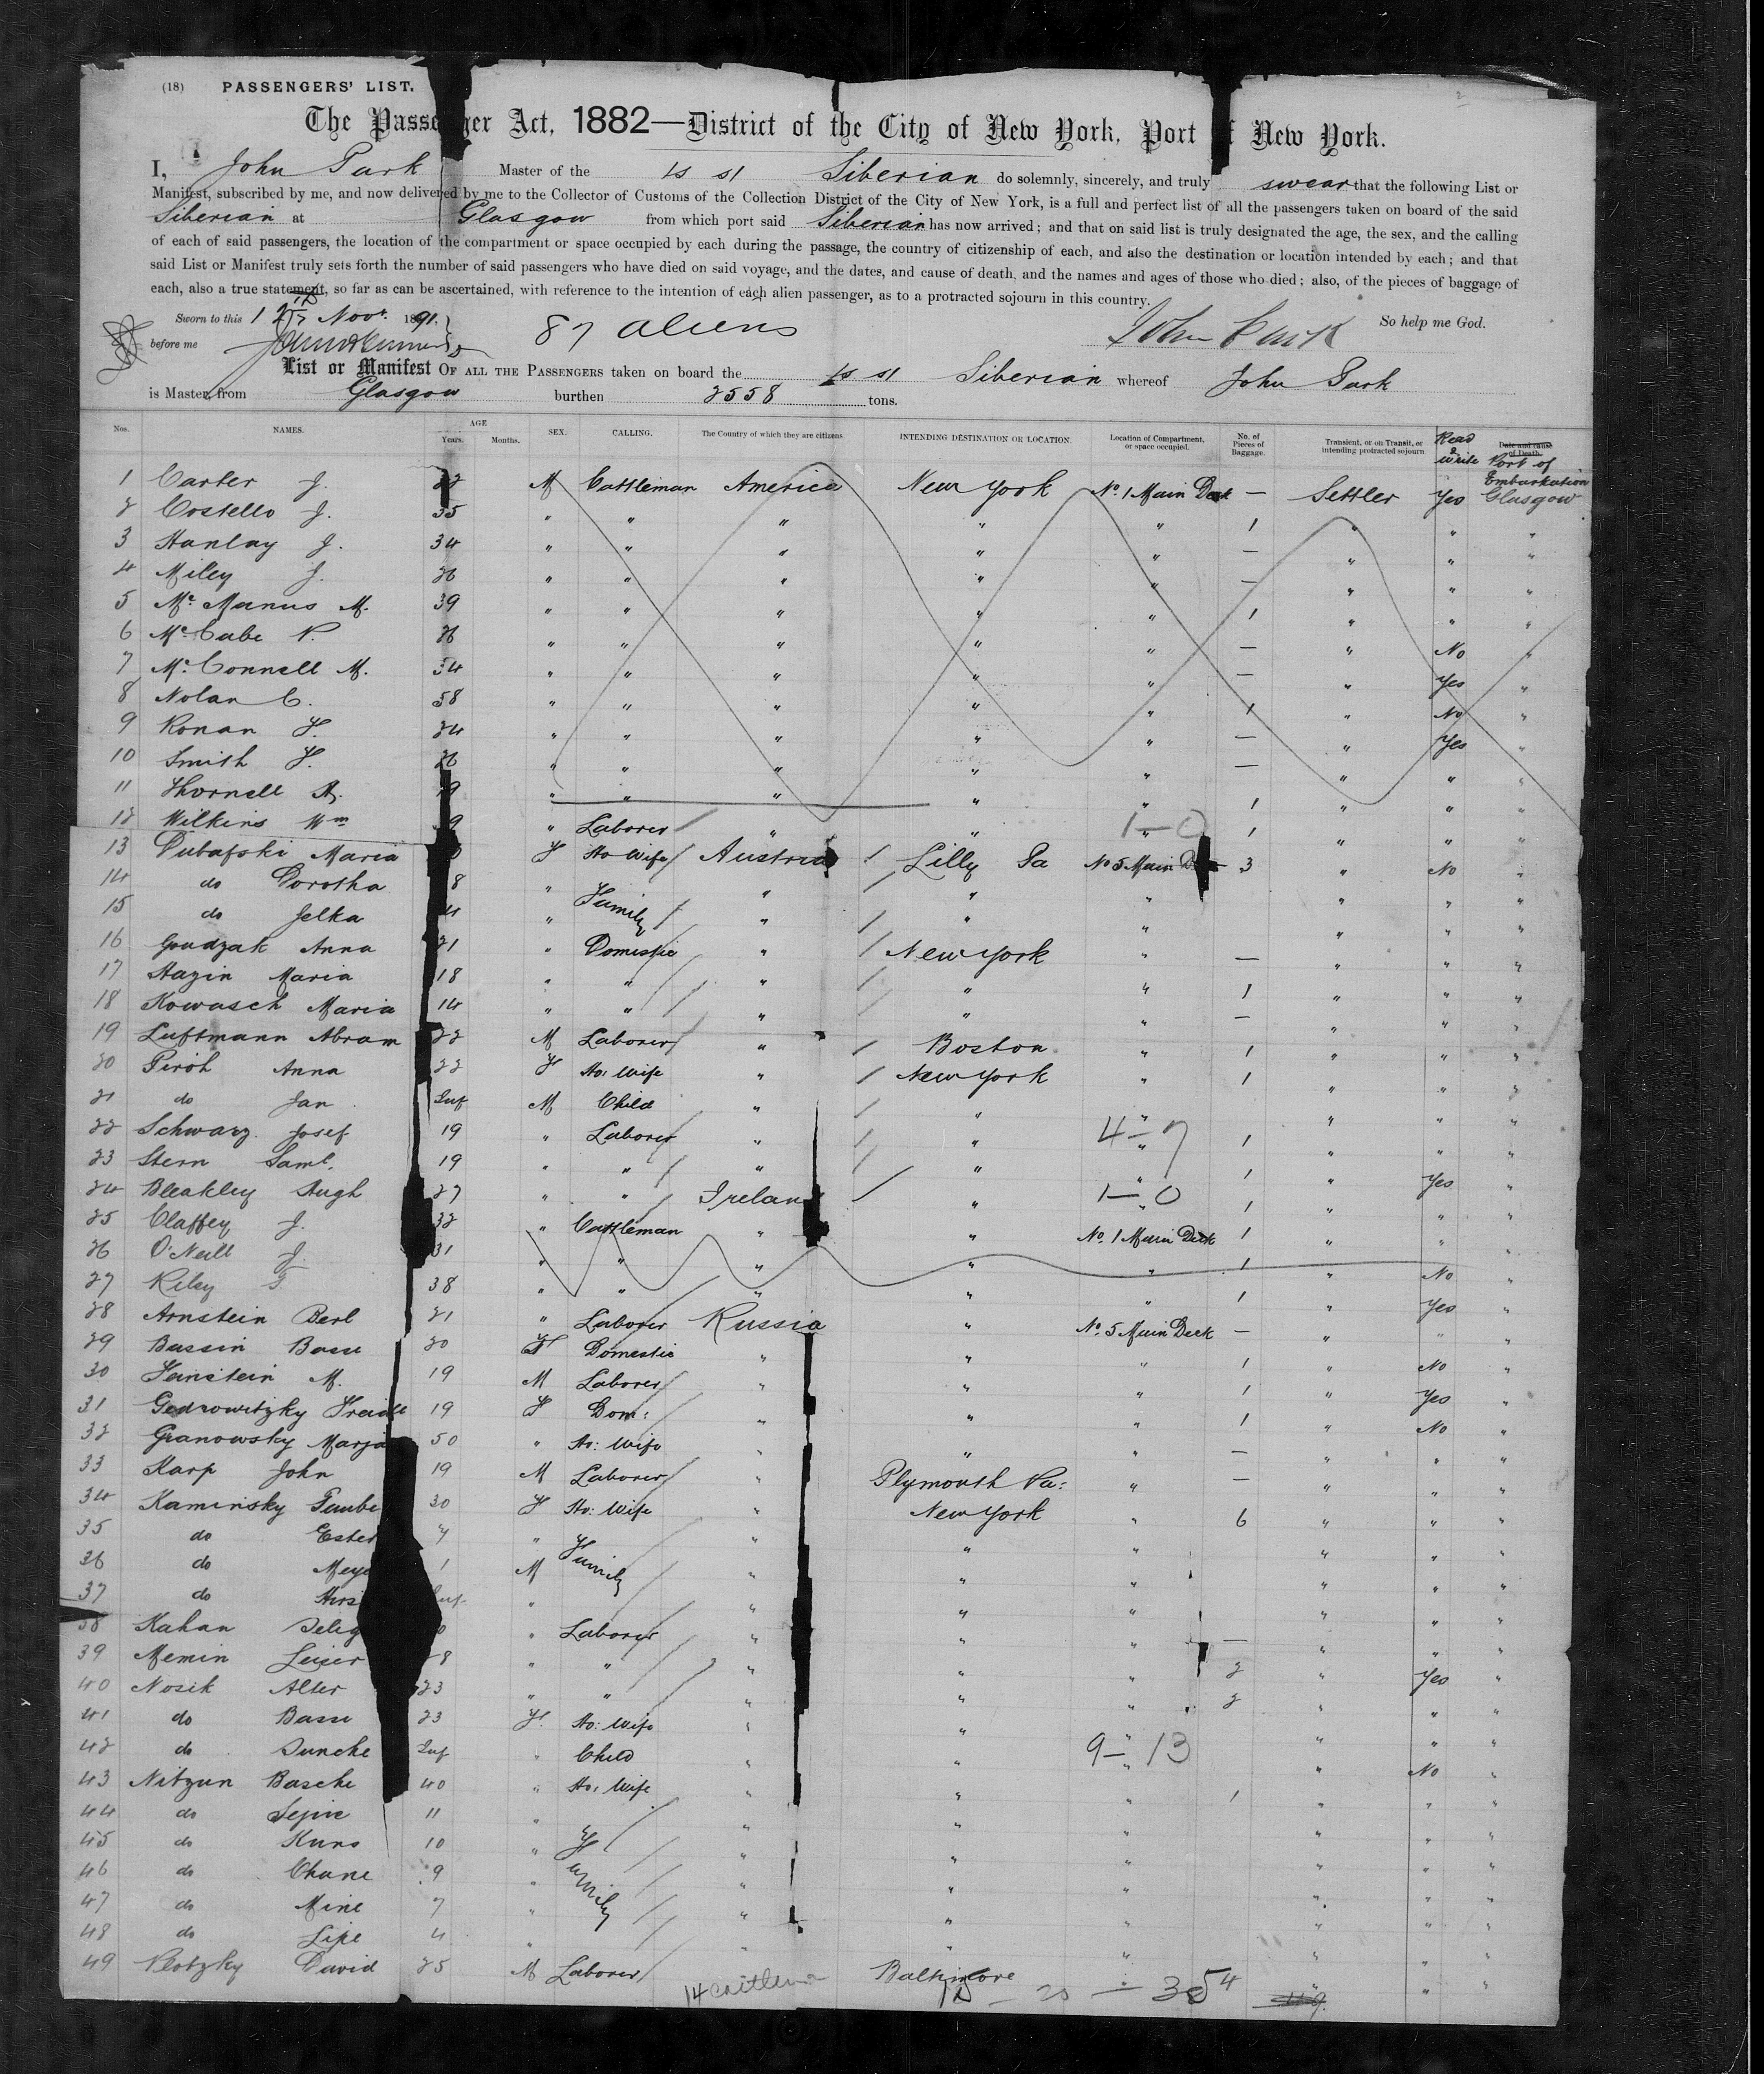 (18) PASSENGERS' LIST.
The Passenger Act, 1882—District of the City of New York, Port of New York.
I, John Park Master of the SS Siberian do solemnly, sincerely, and truly swear that the following List or
Manifest, subscribed by me, and now delivered by me to the Collector of Customs of the Collection District of the City of New York, is a full and perfect list of all the passengers taken on board of the said
Siberian at Glasgow from which port said Siberian has now arrived; and that on said list is truly designated the age, the sex, and the calling
of each of said passengers, the location of the compartment or space occupied by each during the passage, the country of citizenship of each, and also the destination or location intended by each; and that
said List or Manifest truly sets forth the number of said passengers who have died on said voyage, and the dates, and cause of death, and the names and ages of those who died; also, of the pieces of baggage of
each, also a true statement, so far as can be ascertained, with reference to the intention of each alien passenger, as to a protracted sojourn in this country.
Sworn to this 12th Novr. 1891. 87 aliens John Park So help me God.
before me
List or Manifest OF ALL THE PASSENGERS taken on board the SS Siberian whereof John Park
is Master, from Glasgow burthen 2558 tons.
Nos. NAMES. AGE Years. Months. SEX. CALLING. The Country of which they are citizens. INTENDING DESTINATION OR LOCATION. Location of Compartment, or space occupied. No. of Pieces of Baggage. Transient, or on Transit, or intending protracted sojourn Read & write Date and cause of Death. Port of Embarkation
1 Carter J. 22 M Cattleman America New York No. 1 Main Deck — Settler Yes Glasgow
2 Costello J. 35 " " " " " 1 " " "
3 Hanlay J. 34 " " " " " — " " "
4 Miley J. 26 " " " " " — " " "
5 Mc Manus M. 39 " " " " " 1 " " "
6 Mc Cabe P. 26 " " " " " — " No "
7 Mc Connell M. 34 " " " " " — " Yes "
8 Nolan C. 58 " " " " " 1 " No "
9 Ronan T. 24 " " " " " — " Yes "
10 Smith T. 26 " " " " " — " " "
11 Thornell A. 9 " " " " " 1 " " "
12 Wilkins Wm 9 " Laborer " " 1—0 " 1 " " "
13 Maria F Ho Wife Austria Lilly Pa No 5 Main Deck 3 " No "
14 do Dorotha 8 " Family " " " " " "
15 do Jelka 4 " " " " " " "
16 Gondzak Anna 21 " Domestic " New York " — " " "
17 Hazin Maria 18 " " " " " 1 " " "
18 Kowasch Maria 14 " " " " " — " " "
19 Luftmann Abram 22 M Laborer " Boston " 1 " " "
20 Piroh Anna 22 F Ho: Wife " New York " 1 " " "
21 do Jan Inf M Child " " " " " "
22 Schwarz Josef 19 " Laborer " " 4—7 " 1 " " "
23 Stern Saml. 19 " " " " " 1 " Yes "
24 Bleakley Hugh 27 " " Ireland " 1—0 " 1 " " "
25 Claffey J. 32 " Cattleman " " No. 1 Main Deck 1 " " "
26 O'Neill J. 31 " " " " " 1 " No "
27 Riley T. 38 " " " " " 1 " Yes "
28 Arnstein Berl 21 " Laborer Russia " No. 5 Main Deck — " " "
29 Bassin Basse 20 F Domestic " " " 1 " No "
30 Feinstein M. 19 M Laborer " " " 1 " Yes "
31 Gedrowitzky Freide 19 F Dom: " " " 1 " No "
32 Granowsky Marja 50 " Ho: Wife " " " — " " "
33 Karp John 19 M Laborer " Plymouth Pa: " — " " "
34 Kaminsky Taube 30 F Ho: Wife " New York " 6 " " "
35 do Ester 7 " Family " " " " " "
36 do Meye 1 M " " " " " "
37 do Hirs Inf " " " " " " "
38 Kahan Selig 0 " Laborer " " " — " " "
39 Memin Leiser 8 " " " " " 2 " Yes "
40 Nosik Alter 23 " " " " " 2 " " "
41 do Basse 23 F. Ho: Wife " " " " " "
42 do Suncke Inf " Child " " 9—13 " " No "
43 Nitzun Basche 40 " Ho: Wife " " " 1 " " "
44 do 11 " Family " " " " " "
45 do Kuno 10 " " " " " " "
46 do Chane 9 " " " " " " "
47 do Mine 7 " " " " " " "
48 do Lipe 4 " " " " " " "
49 Plotzky David 25 M Laborer Baltimore " " " "
14 cattlemen — 20 — 54